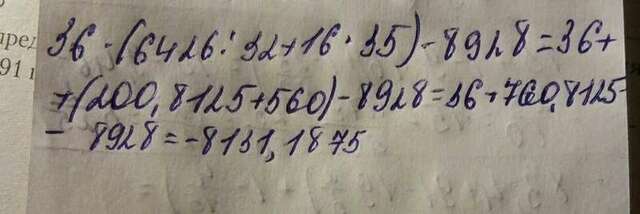 пред
91 г
36 · (6426 : 32 + 16 · 35) - 8928 = 36 +
+ (200,8125 + 560) - 8928 = 36 + 760,8125 -
- 8928 = -8131,1875